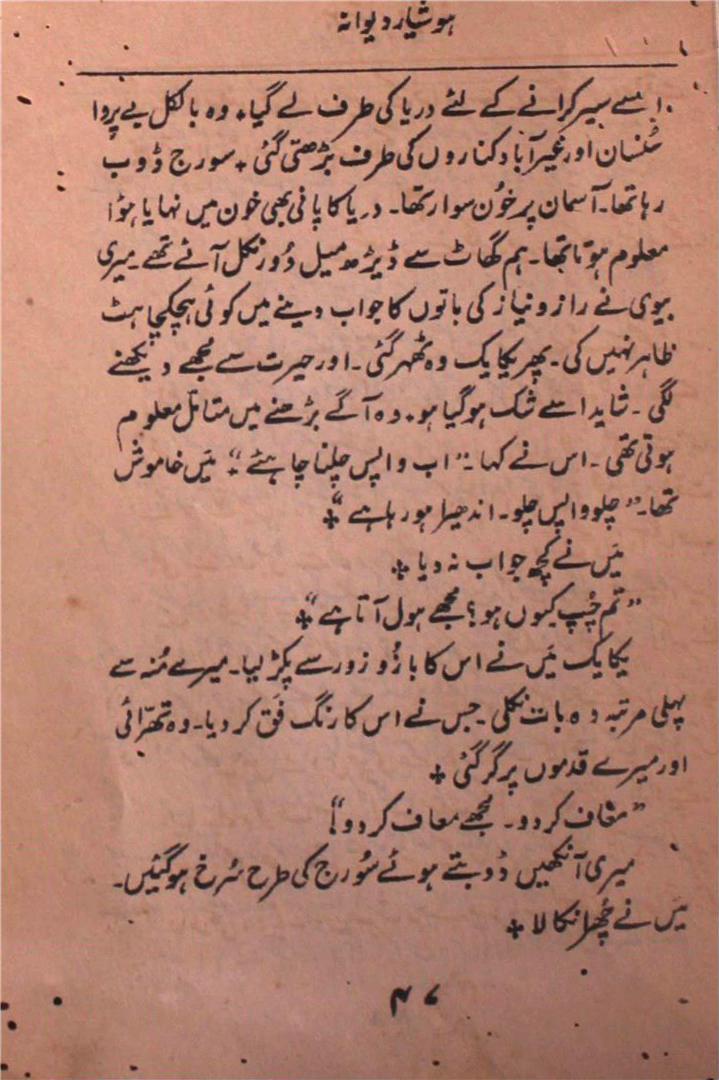 ہوشیار دیوانہ
اسے سیر کرانے کے لئے دریا کی طرف لے گیا + وہ بالکل بے پروا
سُنسان اور غیر آباد کناروں کی طرف بڑھتی گئی + سورج ڈوب
رہا تھا۔ آسمان پر خُون سوار تھا۔ دریا کا پانی بھی خون میں نہایا ہوُا
معلوم ہوتا تھا۔ ہم گھاٹ سے ڈیڑھ میل دُور نکل آئے تھے۔ میری
بیوی نے راز و نیاز کی باتوں کا جواب دینے میں کوئی ہچکچاہٹ
ظاہر نہیں کی۔ پھر یکایک وہ ٹھہر گئی۔ اور حیرت سے مُجھے دیکھنے
لگی۔ شاید اسے شک ہو گیا ہو + وہ آگے بڑھنے میں متامّل معلوم
ہوتی تھی۔ اس نے کہا۔ "اب واپس چلنا چاہئے"۔ مَیں خاموش
تھا۔ "چلو واپس چلو۔ اندھیرا ہو رہا ہے" +
مَیں نے کچھ جواب نہ دیا +
"تم چُپ کیوں ہو؟ مجھے ہول آتا ہے" +
یکایک مَیں نے اس کا بازُو زور سے پکڑ لیا۔ میرے مُنہ سے
پہلی مرتبہ وہ بات نکلی۔ جس نے اس کا رنگ فَق کر دیا۔ وہ تھرّائی
اور میرے قدموں پر گر گئی +
"معاف کر دو۔ مُجھے معاف کر دو"!
میری آنکھیں ڈوبتے ہوئے سُورج کی طرح سُرخ ہو گئیں۔
مَیں نے چُھرا نکالا +
۴۷